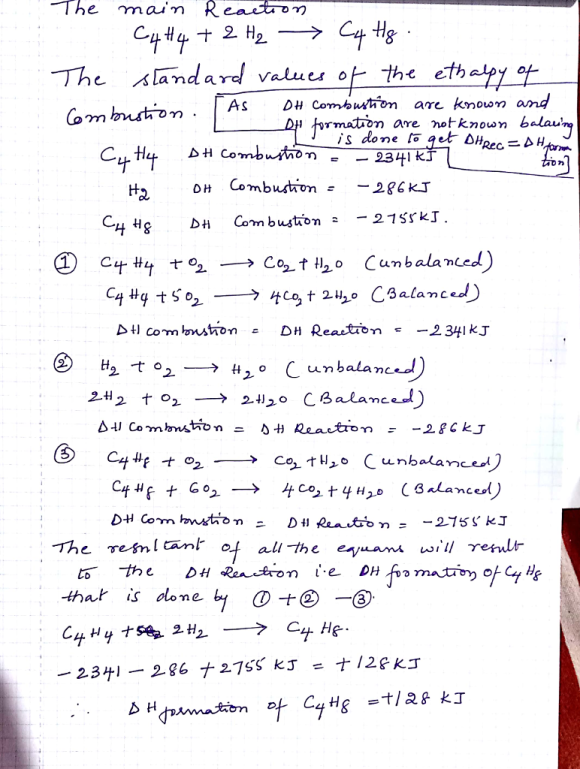 The main Reaction
C4H4 + 2 H2 → C4 H8 .
The standard values of the ethalpy of
Combustion . [As DH Combustion are known and
DH formation are not known balacing
is done to get ΔHREC = ΔH formation]
C4 H4 ΔH Combustion = - 2341 KJ
H2 DH Combustion = - 286KJ
C4 H8 DH Combustion = - 2755KJ .
① C4 H4 + O2 → CO2 + H2O (unbalanced)
C4 H4 + 5O2 → 4CO2 + 2H2O (Balanced)
ΔH combustion = DH Reaction = -2341KJ
② H2 + O2 → H2O (unbalanced)
2H2 + O2 → 2H2O (Balanced)
ΔH Combustion = DH Reaction = -286KJ
③ C4 H8 + O2 → CO2 + H2O (unbalanced)
C4 H8 + 6O2 → 4CO2 + 4H2O (Balanced)
DH Combustion = DH Reaction = -2755 KJ
The resultant of all the equans will result
to the DH Reaction i.e DH formation of C4 H8
that is done by ① + ② - ③.
C4 H4 + 2H2 → C4 H8.
- 2341 - 286 + 2755 KJ = + 128KJ
∴ DH formation of C4H8 = +128 KJ